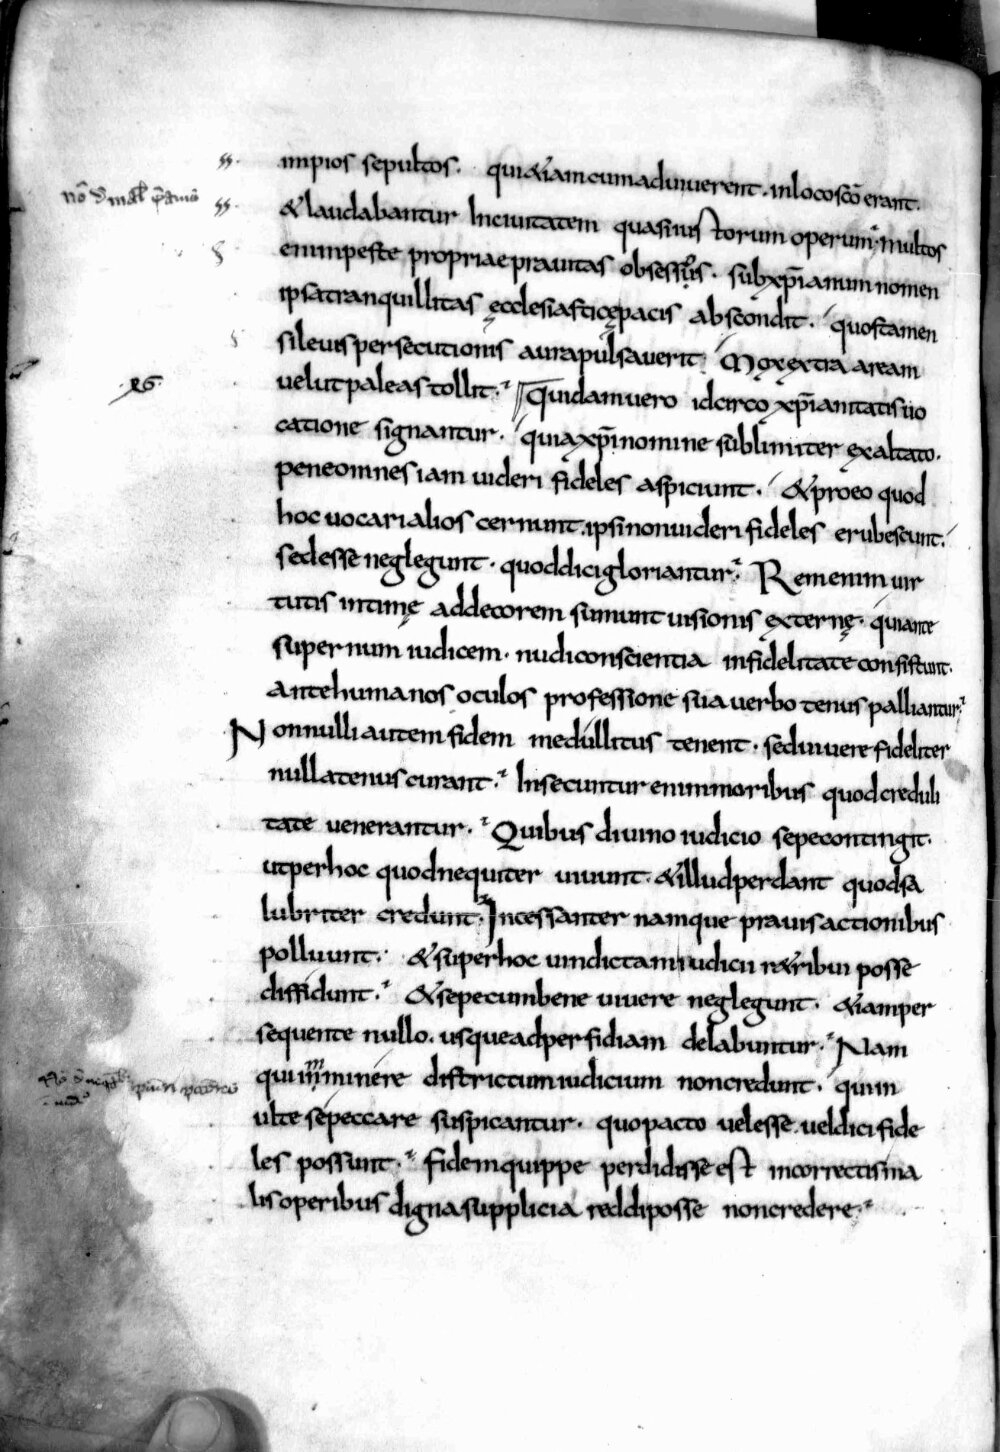 impios sepultos. qui&iamcumaduiuerent. inlocoscō erant.
&laudabantur Inciuitatem quasiiustorum operum; multos
enimpeste propriaeprauitas obsessos. subxp̄ianum nomen
ipsatranquillitas ęcclesiasticępacis abscondit. quostamen
sileuispersecutionis aurapulsauerit. Moxextra aream
uelutpaleastollit. Quidamuero idcirco xp̄ianitatisuo
catione signantur. quiaxp̄inomine sublimiter exaltato.
peneomnesiam uideri fideles aspiciunt. &proeo quod
hoc uocarialios cernunt. ipsinonuideri fideles erubescunt.
sedesse neglegunt. quoddicigloriantur. Remenim uir
tutis intimę addecorem sumunt uisionis externę. quiante
supernum iudicem. nudiconscientia infidelitate consistunt.
antehumanos oculos professione sua uerbo tenus palliantur.
Nonnulli autem fidem medullitus tenent. seduiuere fideliter
nullatenus curant. Insecuntur enimmoribus quodcreduli
tate uenerantur. Quibus diuino iudicio sepecontingit.
utperhoc quodnequiter uiuunt. &illudperdant quodsa
lubriter credunt. Incessanter namque prauisactionibus
polluunt. &superhoc uindictamiudicii r&ribui posse
diffidunt. &sepecumbene uiuere neglegunt. &iamper
sequente nullo. usqueadperfidiam delabuntur. Nam
qui imminere districtumiudicium noncredunt. quiin
ulte sepeccare suspicantur. quopacto uelesse. ueldici fide
les possunt. fidemquippe perdidisse est incorrectisma
lisoperibus dignasupplicia reddiposse noncredere.